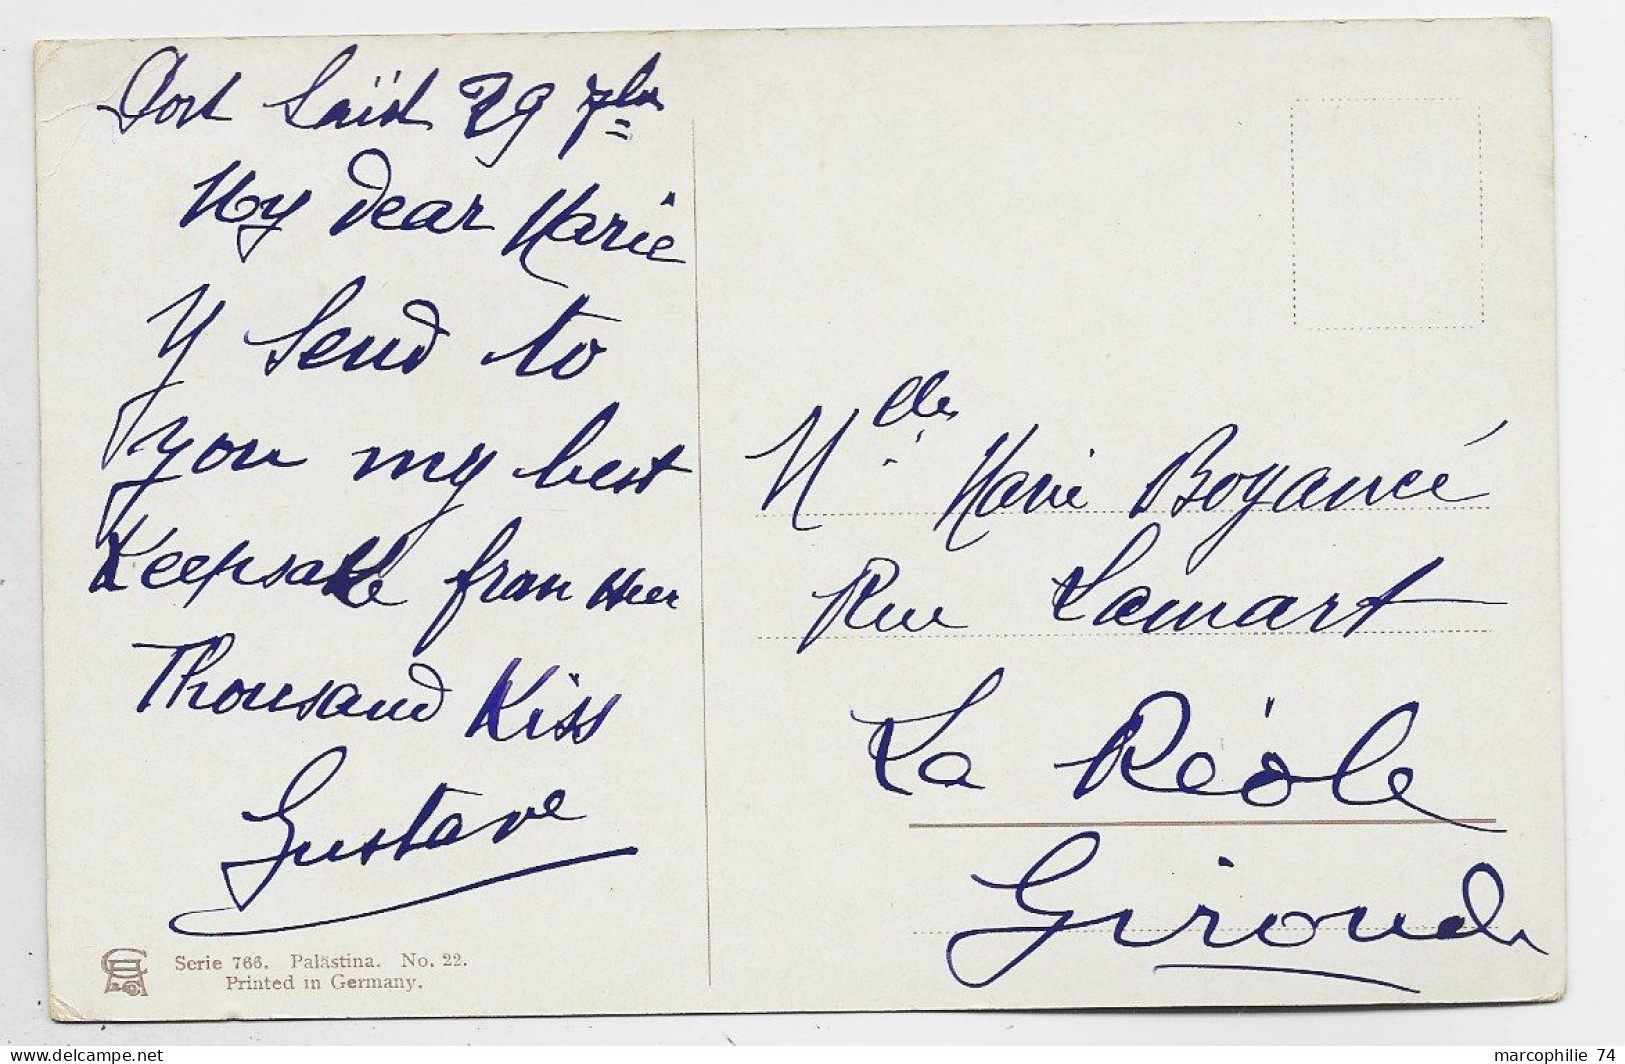 Port Saïd 29 7bre
My dear Marie
Y send to
you my best
Keepsake from
Thousand Kiss
Gustave
Serie 766. Palästina. No. 22.
Printed in Germany.
Mlle Marie Boyancé
Rue Lamart
La Réole
Gironde
marcophilie 74